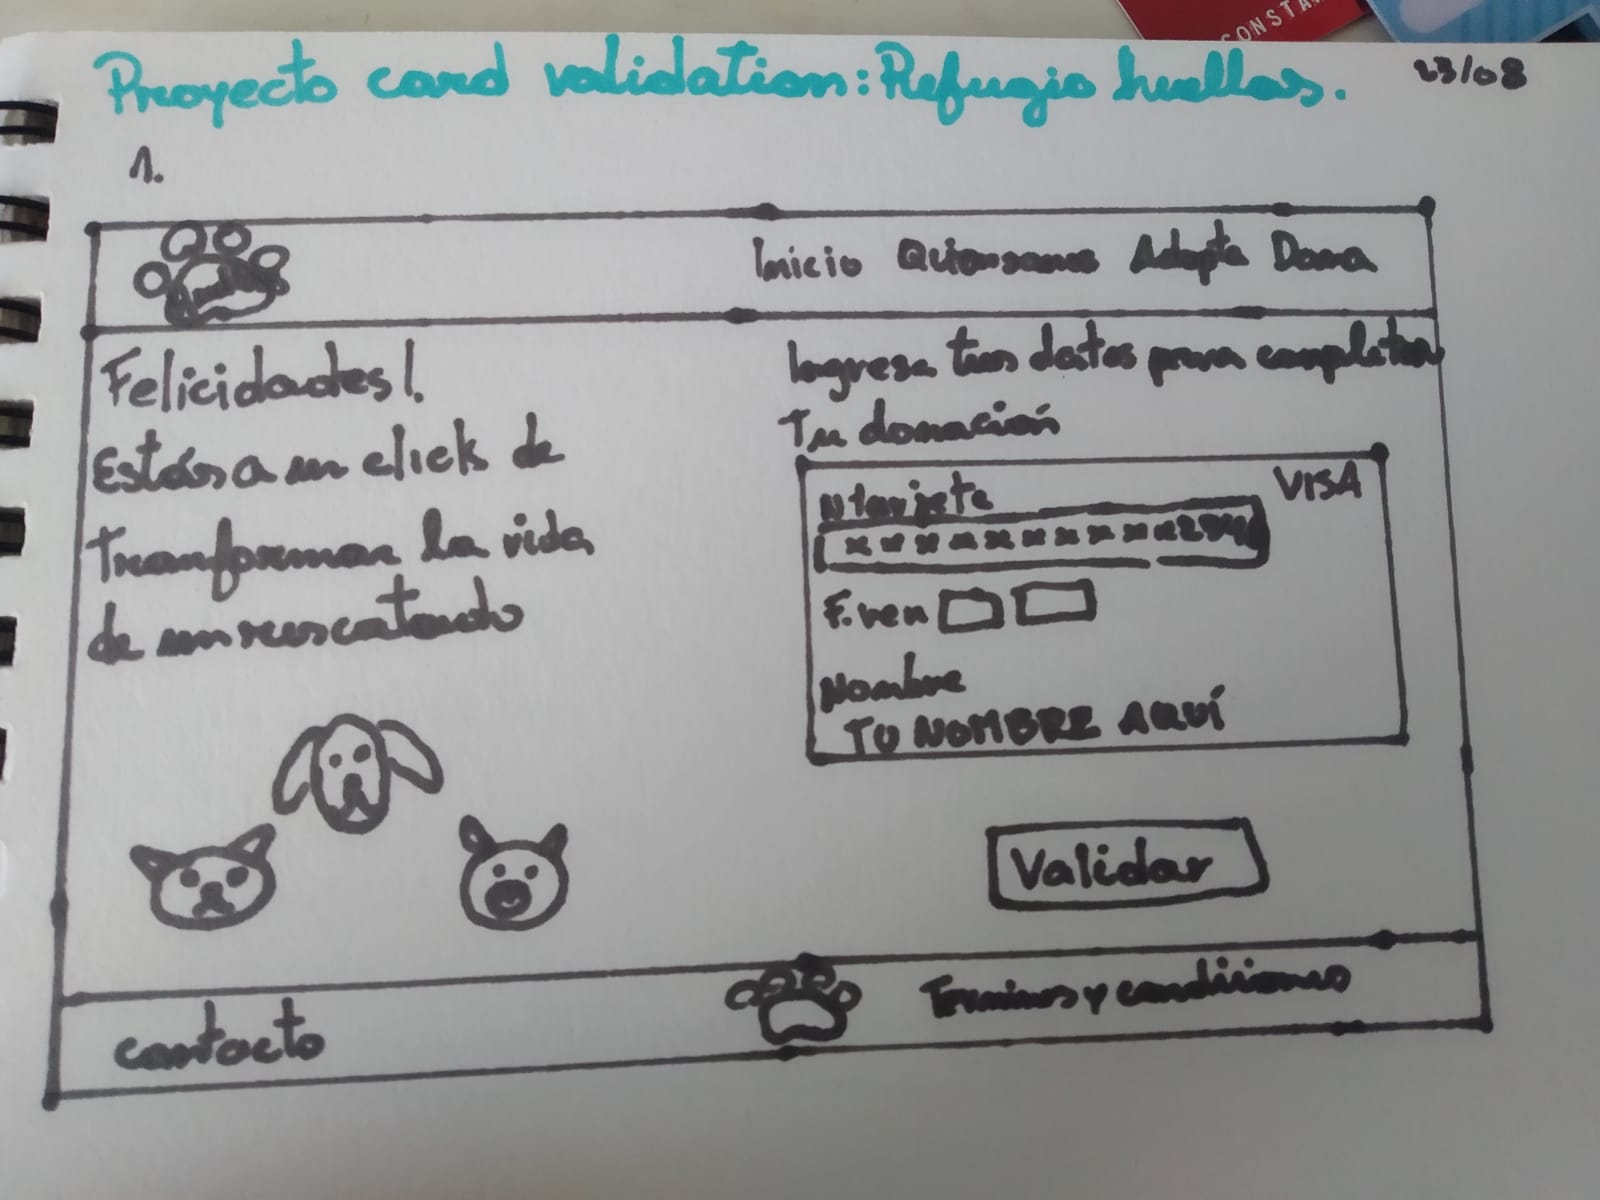 CONSTA
Proyecto card validation: Refugio huellas.
23/08
1.
Inicio Quienes somos Adopta Dona
Felicidades!.
Estás a un click de
Tranformar la vida
de un rescatado
Ingresa tus datos para completar
Tu donación
N tarjeta
VISA
F. ven
Nombre
TU NOMBRE AQUÍ
Validar
contacto
Terminos y condiciones